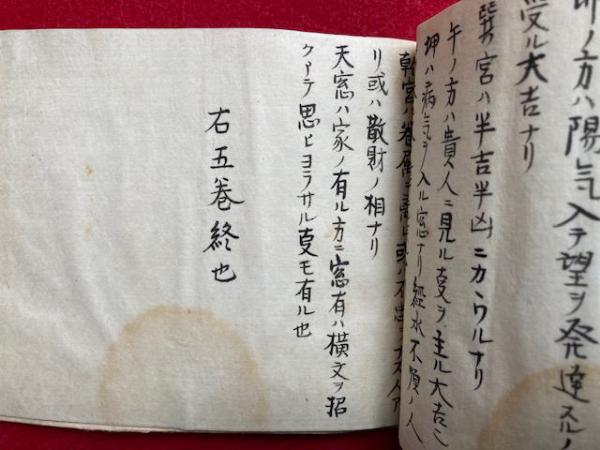 卯ノ方ハ陽気入テ望ヲ発達スルノ
受ル大吉ナリ
巽宮ハ半吉半凶ニカヽウルナリ
午ノ方ハ貴人ニ見ル叓ヲ主ル大吉
坤ハ病気ノ入ル窓ナリ経水不順ノ人
乾宮ハ眷属
リ或ハ散財ノ相ナリ
天窓ハ家ノ有ル方ニ窓有ハ横文ヲ招
クアテ思ヒヨラサル叓モ有ル也
右五巻終也